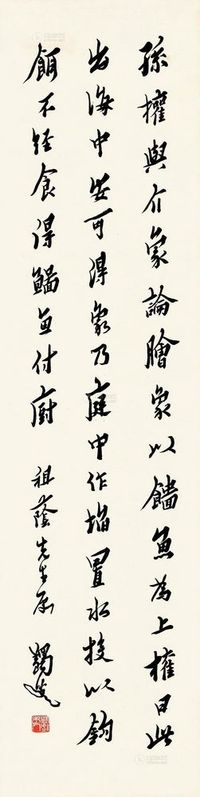 孫權與介象論膾象以鯔魚為上權曰此
出海中安可得象乃庭中作坎置水投以鉤
餌不經食得鯔魚付廚
祖蔭先生屬